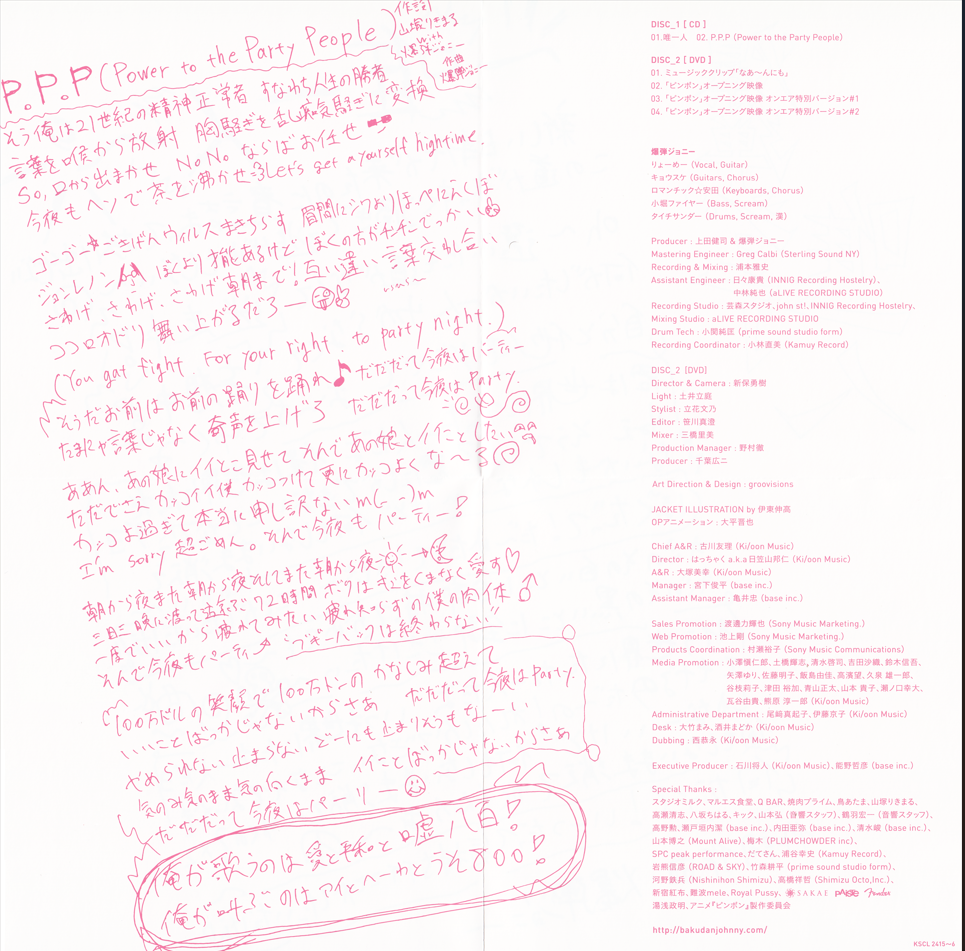 P.P.P (Power to the Party People)
作詞
山塚りきまる
with
爆弾ジョニー
作曲
爆弾ジョニー
そう俺は21世紀の精神正常者 すなわち人生の勝者
言葉を喉から放射 胸騒ぎを乱痴気騒ぎに変換
So, 口から出まかせ No No ならばお任せ
今夜もヘソで茶を沸かせ Let's get a yourself hightime.
ゴーゴー ごきげんウィルスまきちらす 眉間にシワよりほっぺにえくぼ
ジョンレノン ぼくより才能あるけど ぼくの方がチンチンでっかい
さわげ、さわげ、さわげ朝まで! 互い違い言葉交わし合い
ココロオドリ 舞い上がるだろー
(You gat fight. For your right. to party night.)
そうだお前はお前の踊りを踊れ♪ だだだって今夜はパーティー
たまにゃ言葉じゃなく 奇声を上げろ だだだって今夜はParty.
ああん、あの娘にイイとこ見せて そんであの娘とイイことしたい
ただでさえ カッコイイ僕 カッコつけて更にカッコよくな〜る
カッコよ過ぎて本当に申し訳ないm(_ _)m
I'm sorry 超ごめん。そんで今夜も パーティー!
朝から夜また朝から夜そしてまた朝から夜
三日三晩に渡って 72時間 ボクはキミをくまなく愛す♡
一度でいいから疲れてみたい 疲れ知らずの僕の肉体♂
そんで今夜もパーティー ブギーバックは終わらない!!
100万ドルの笑顔で 100万トンの かなしみ超えて
いいことばっかじゃないからさあ だだだって今夜はParty.
やめられない 止まらない どーにも止まりそうもなーい
気のみ気のまま気の向くまま イイことばっかじゃないからさあ
だだだって 今夜はパーリー
俺が歌うのは愛と平和と嘘八百!
俺が叫ぶのはアイとヘーワとうそ800!
DISC_1 [ CD ]
01.唯一人 02. P.P.P (Power to the Party People)
DISC_2 [ DVD ]
01. ミュージッククリップ「なあ〜んにも」
02. 「ピンポン」オープニング映像
03. 「ピンポン」オープニング映像 オンエア特別バージョン#1
04. 「ピンポン」オープニング映像 オンエア特別バージョン#2
爆弾ジョニー
りょーめー (Vocal, Guitar)
キョウスケ (Guitars, Chorus)
ロマンチック☆安田 (Keyboards, Chorus)
小堀ファイヤー (Bass, Scream)
タイチサンダー (Drums, Scream, 漢)
Producer : 上田健司 & 爆弾ジョニー
Mastering Engineer : Greg Calbi (Sterling Sound NY)
Recording & Mixing : 浦本雅史
Assistant Engineer : 日々康貴 (INNIG Recording Hostelry)、
中林純也 (aLIVE RECORDING STUDIO)
Recording Studio : 芸森スタジオ、john st!、INNIG Recording Hostelry、
Mixing Studio : aLIVE RECORDING STUDIO
Drum Tech : 小関純匡 (prime sound studio form)
Recording Coordinator : 小林直美 (Kamuy Record)
DISC_2 [DVD]
Director & Camera : 新保勇樹
Light : 土井立庭
Stylist : 立花文乃
Editor : 笹川真澄
Mixer : 三橋里美
Production Manager : 野村徹
Producer : 千葉広二
Art Direction & Design : groovisions
JACKET ILLUSTRATION by 伊東伸高
OPアニメーション : 大平晋也
Chief A&R : 古川友理 (Ki/oon Music)
Director : はっちゃく a.k.a 日笠山邦仁 (Ki/oon Music)
A&R : 大塚美幸 (Ki/oon Music)
Manager : 宮下俊平 (base inc.)
Assistant Manager : 亀井忠 (base inc.)
Sales Promotion : 渡邉力輝也 (Sony Music Marketing.)
Web Promotion : 池上剛 (Sony Music Marketing.)
Products Coordination : 村瀬裕子 (Sony Music Communications)
Media Promotion : 小澤愼仁郎、土橋輝志、清水啓司、吉田沙織、鈴木信吾、
矢澤ゆり、佐藤明子、飯島由佳、高濱望、久泉 雄一郎、
谷枝莉子、津田 裕加、青山正太、山本 貴子、瀬ノ口幸大、
瓦谷由貴、熊原 淳一郎 (Ki/oon Music)
Administrative Department : 尾﨑真起子、伊藤京子 (Ki/oon Music)
Desk : 大竹まみ、酒井まどか (Ki/oon Music)
Dubbing : 西恭永 (Ki/oon Music)
Executive Producer : 石川将人 (Ki/oon Music)、能野哲彦 (base inc.)
Special Thanks :
スタジオミルク、マルエス食堂、Q BAR、焼肉プライム、鳥あたま、山塚りきまる、
高瀬清志、八坂ちはる、キック、山本弘 (音響スタッフ)、鶴羽宏一 (音響スタッフ)、
高野勲、瀬戸垣内潔 (base inc.)、内田亜弥 (base inc.)、清水峻 (base inc.)、
山本博之 (Mount Alive)、梅木 (PLUMCHOWDER inc)、
SPC peak performance、だてさん、浦谷幸史 (Kamuy Record)、
岩熊信彦 (ROAD & SKY)、竹森耕平 (prime sound studio form)、
河野鉄兵 (Nishinihon Shimizu)、高橋祥哲 (Shimizu Octo,Inc.)、
新宿紅布、難波mele、Royal Pussy、 SAKAE PAiSTe Fender
湯浅政明、アニメ『ピンポン』製作委員会
http://bakudanjohnny.com/
KSCL 2415〜6